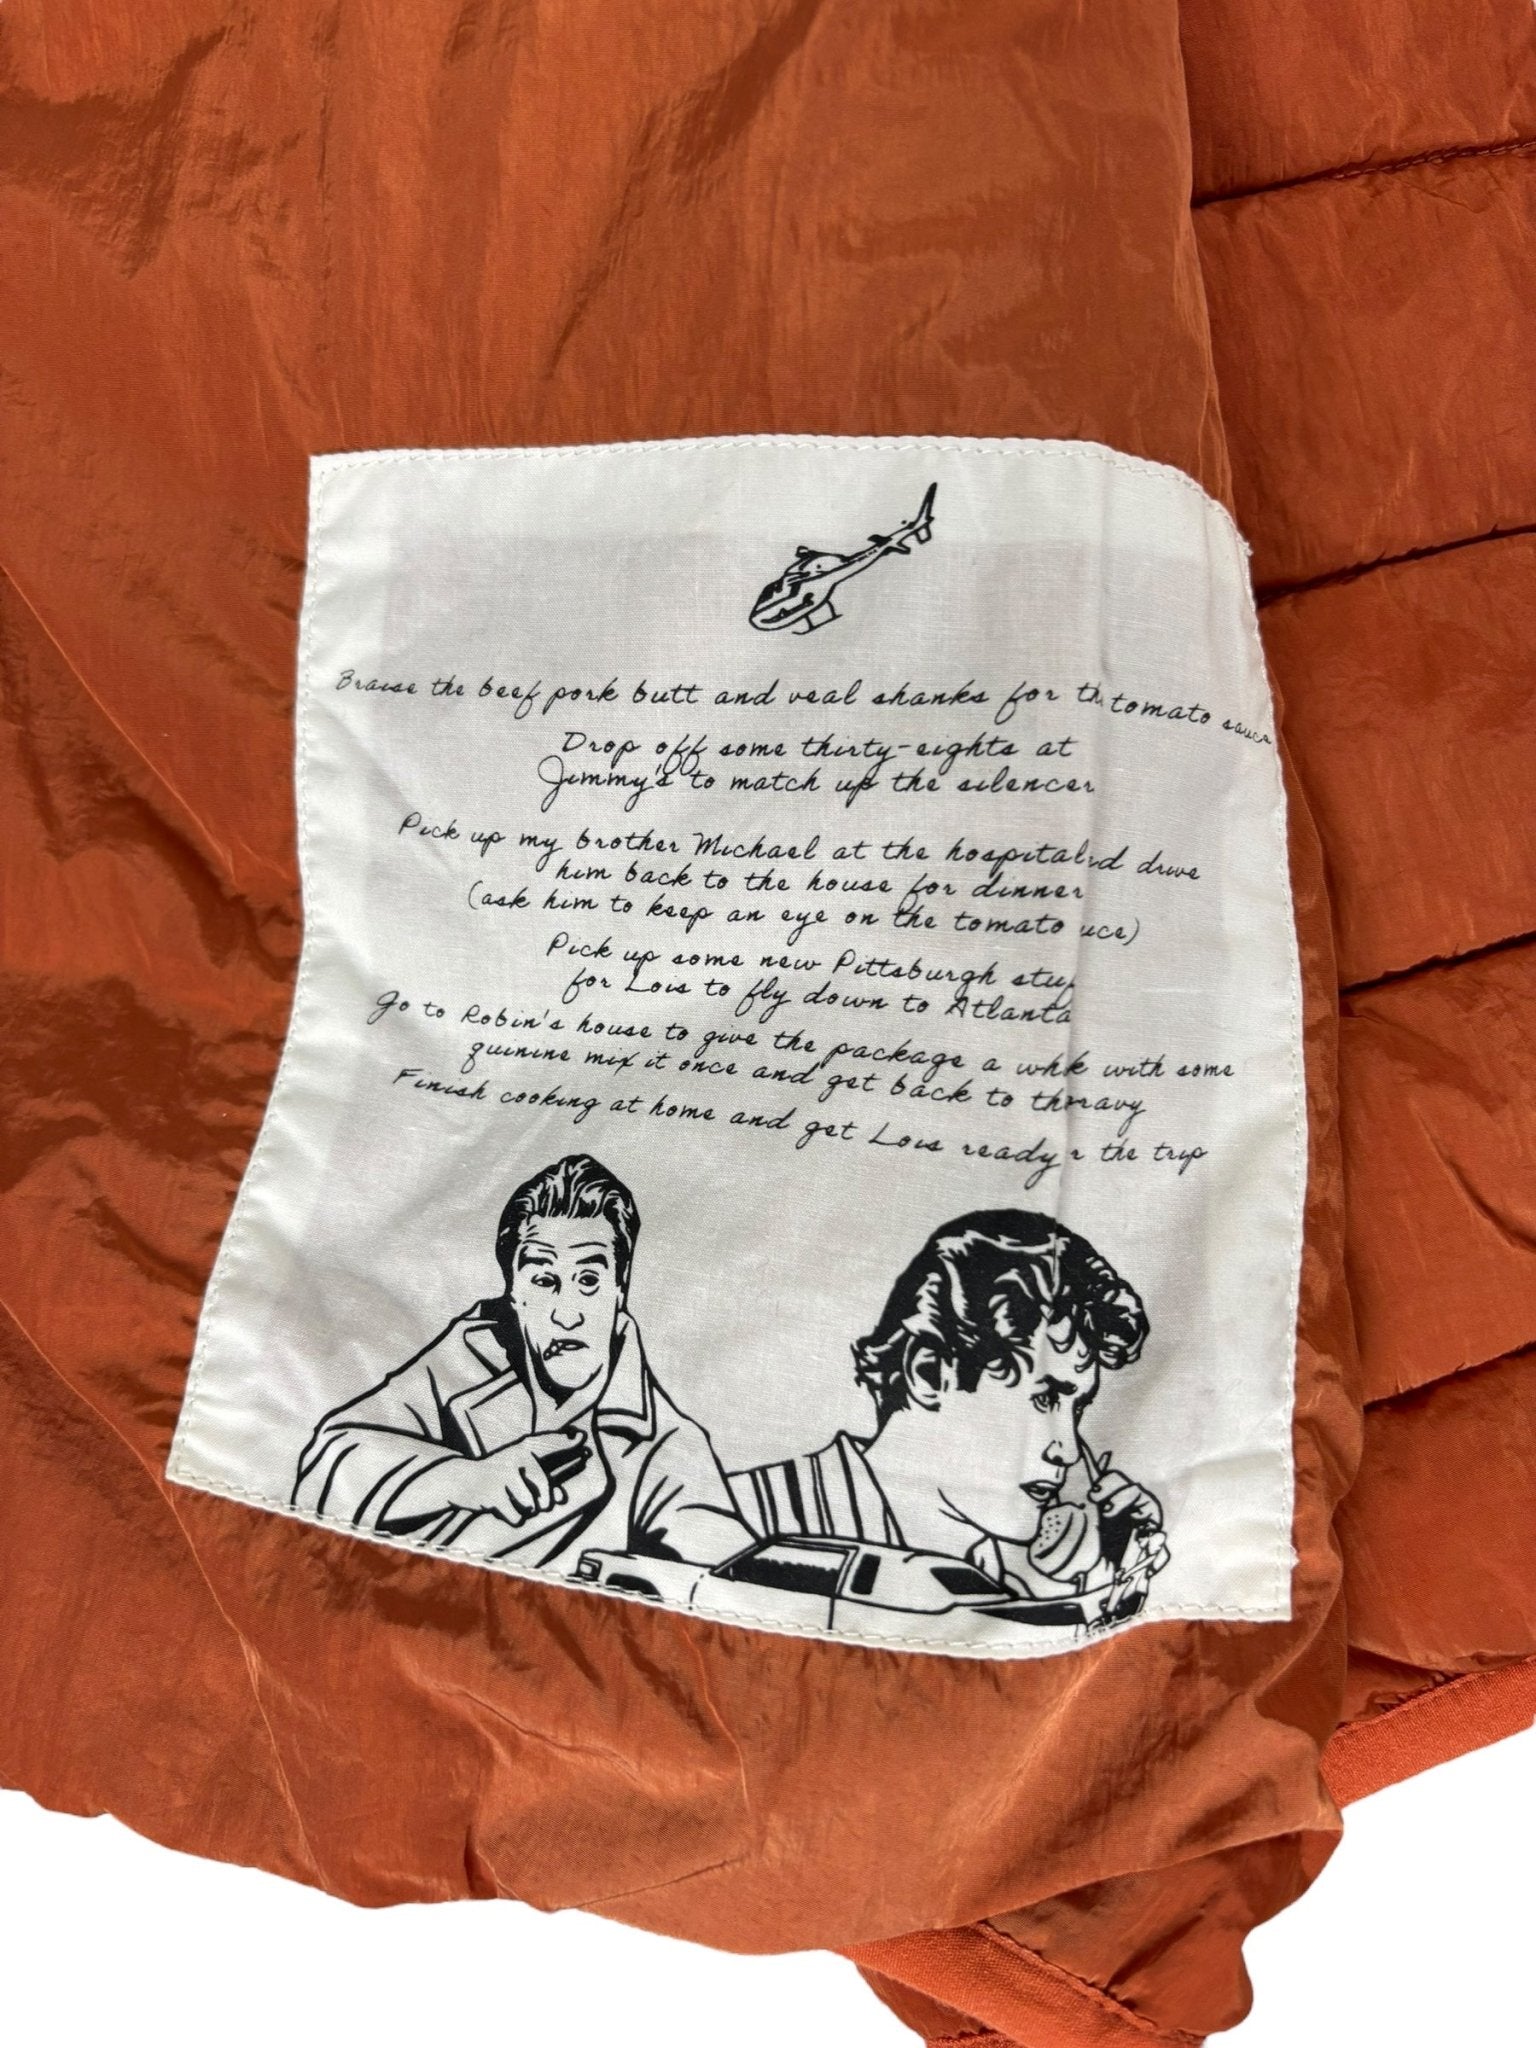 Braise the beef pork butt and veal shanks for th tomato sauce
Drop off some thirty-eights at
Jimmy's to match up the silencer
Pick up my brother Michael at the hospital d drive
him back to the house for dinner
(ask him to keep an eye on the tomato uce)
Pick up some new Pittsburgh stuf
for Lois to fly down to Atlanta
Go to Robin's house to give the package a wh k with some
quinine mix it once and get back to th ravy
Finish cooking at home and get Lois ready r the trip